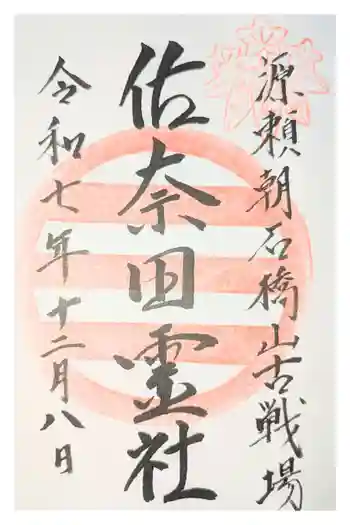 源頼朝石橋山古戦場
佐奈田霊社
令和七年十二月八日